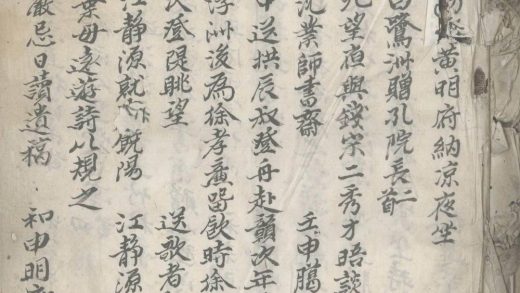 黃明府納涼夜坐
白鷺洲贈孔院長二首
望夜與錢宗二秀才晤談
沈業師書齋 壬申臈
中送拱辰叔登舟赴贛次年
浮洲後為徐孝廉留飲時徐
登隄眺望 送歌者
江静源就飲陽 江静源
葉母遠遊詩以規之
嚴忌日讀遺稿 和申明